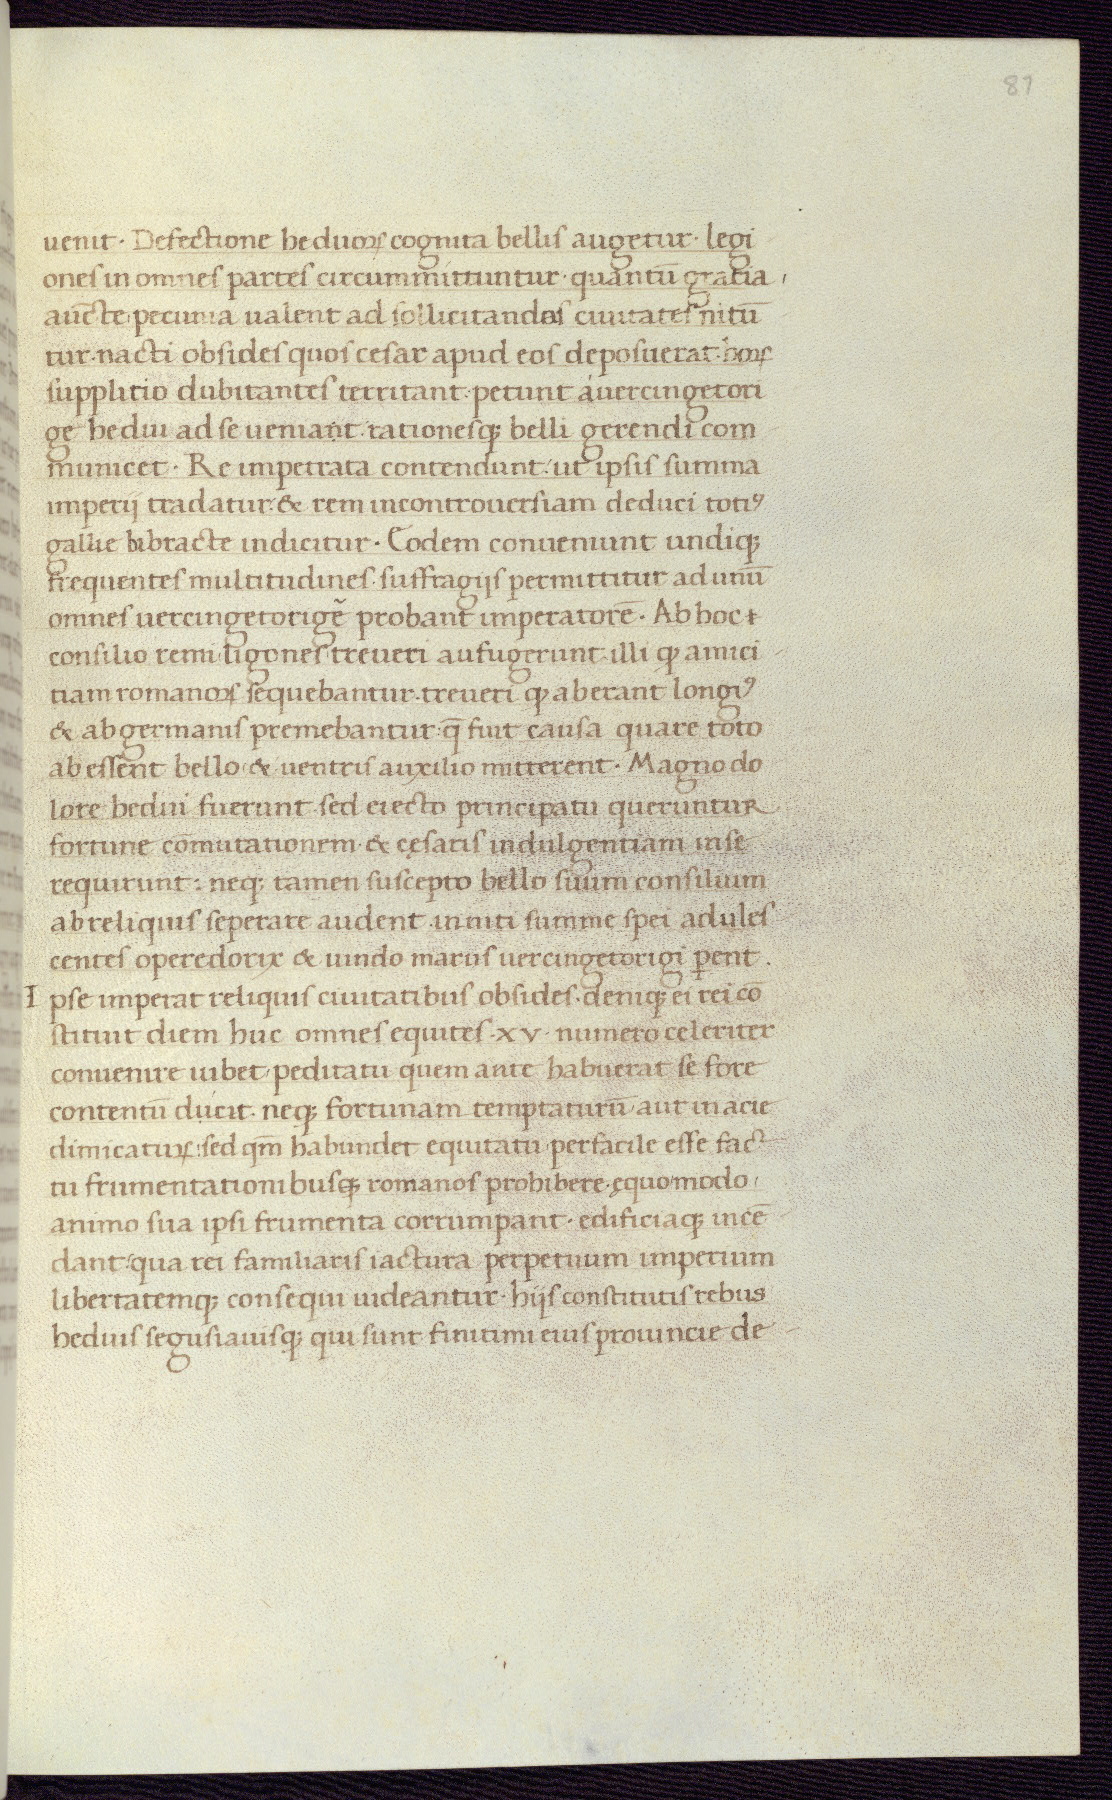 81
uenit · Defectione heduoꝝ cognita bellis augetur · legi
ones in omnes partes circummittuntur · quantū gratia
aūcte pecunia ualent ad sollicitandos ciuitates nitū
tur · nacti obsides quos cesar apud eos deposuerat · hoꝝ
supplitio dubitantes territant · petunt a uercingetori
ge hedui ad se ueniant · rationesqꝫ belli gerendi com
municet · Re impetrata contendunt · ut ipsis summa
imperij tradatur · & rem incontrouersiam deduci totiꝰ
gallie bibracte indicitur · Codem conueniunt undiqꝫ
frequentes multitudines · suffragijs permittitur ad unū
omnes uercingetorigē probant imperatorē · Ab hoc
consilio remi lıgones treueri aufugerunt · illi qꝫ amici
tiam romanoꝝ sequebantur · treueri qꝫ aberant longiꝰ
& ab germanis premebantur · q̄ fuit causa quare toto
ab essent bello & uentris auxilio mitterent · Magno do
lore hedui fuerunt sed eiecto principatu queruntur
fortune cōmutationem · & cęsaris indulgentiam inse
requirunt : neqꝫ tamen suscepto bello suum consilium
ab reliquis seperare audent · inuiti summe spei adules
centes operedorix & uindo marus uercingetorigi ꝑent .
Ipse imperat reliquis ciuitatibus obsides · deniqꝫ ei rei cō
stituit diem huc omnes equites · xv · numero celeriter
conuenire iubet peditatu quem ante habuerat se fore
contentū ducit · neqꝫ fortunam temptaturū aut in acie
dimicatuꝝ : sed qm̄ habundet equitatu perfacile esse fac
tu frumentationibusqꝫ romanos prohibere · ęquo modo
animo sua ipsi frumenta corrumpant · edificiaqꝫ incē
dant : qua rei familiaris iactura perpetuum imperium
libertatemqꝫ consequi uideantur · hijs constitutis rebus
heduis segusiauisqꝫ qui sunt finitimi eius prouincie de